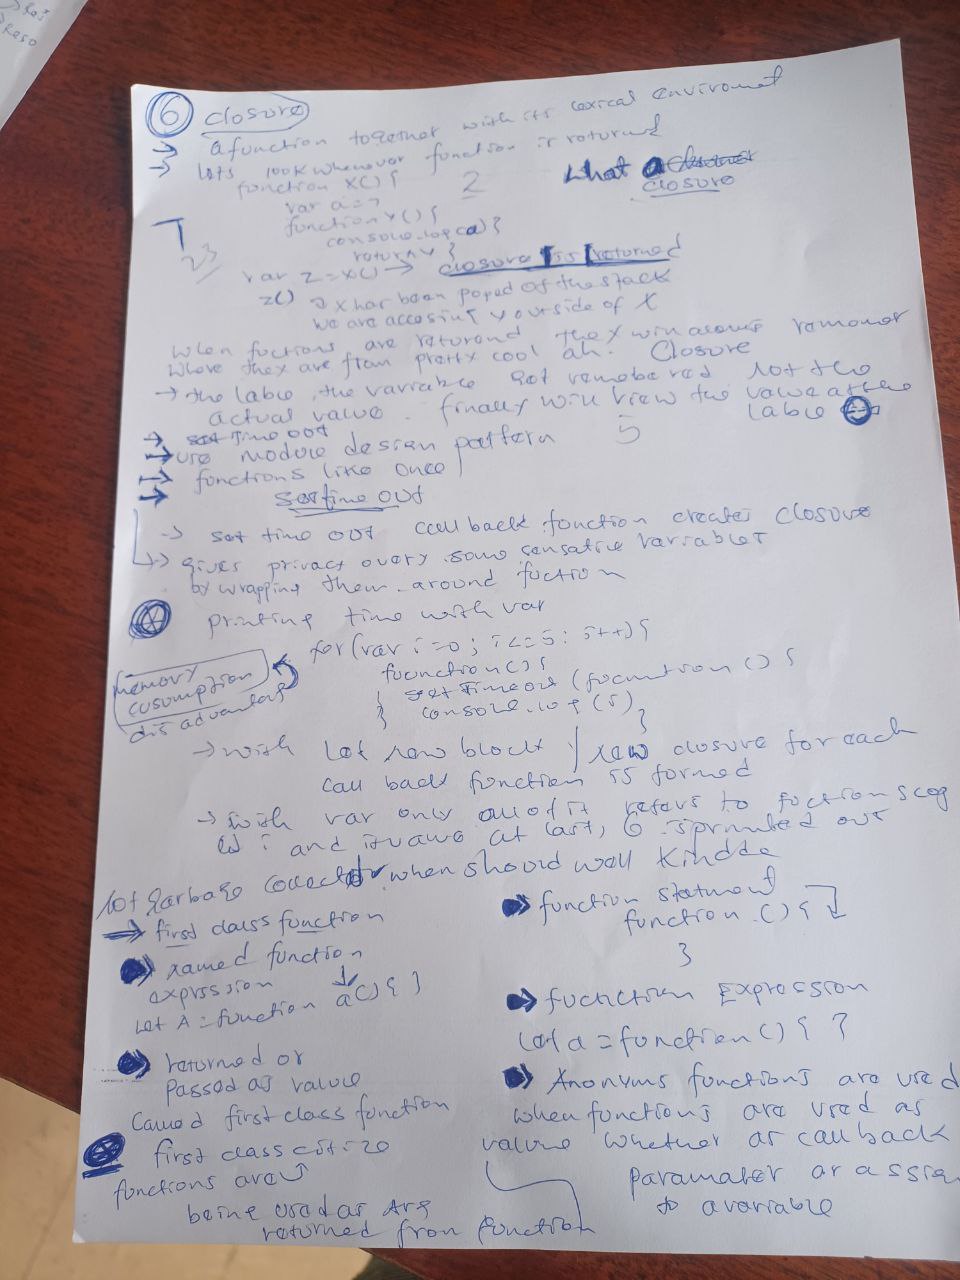 6 closure
→ a function together with its lexical enviromet
→ lets look whenever function is returned
function x() {
2
What a closure
var a = 7
function y() {
console.log(a) }
return y }
var z = x() → closure is returned
z() → x has been poped of the stack
we are accesing y outside of x
when fuctions are returend the x win remember
where they are from pretty cool ah. Closure
→ the lable, the varriable got remobered not the
actual value. finally will view the value at the
lable
→ set time out
5
→ use module design pattern
→ functions like once
→ set time out
→ set time out call back function creates closure
→ gives privacy overy some sensative variables
by wrapping them around fuction
printing time with var
for (var i=0; i<=5; i++) {
function () {
set Timeout (function () {
console.log (5)
}
}
memory
cusumption
dis advantag
→ with let new block / new closure for each
call back function is formed
→ with var only it refers to fuction scop
i and at last, 6 is printed out
not garbage collector when should well kindde
→ first class function
named function
exprssion
Let A = function a() { }
returned or
passed as value
Called first class function
first class citize
functions are
being used as Arg
returned from function
function statment
function () {
}
fucnction Expression
let a = function () { }
Anonyms functions are used
when functions are used as
value whether as call back
paramater or assign
to avariable